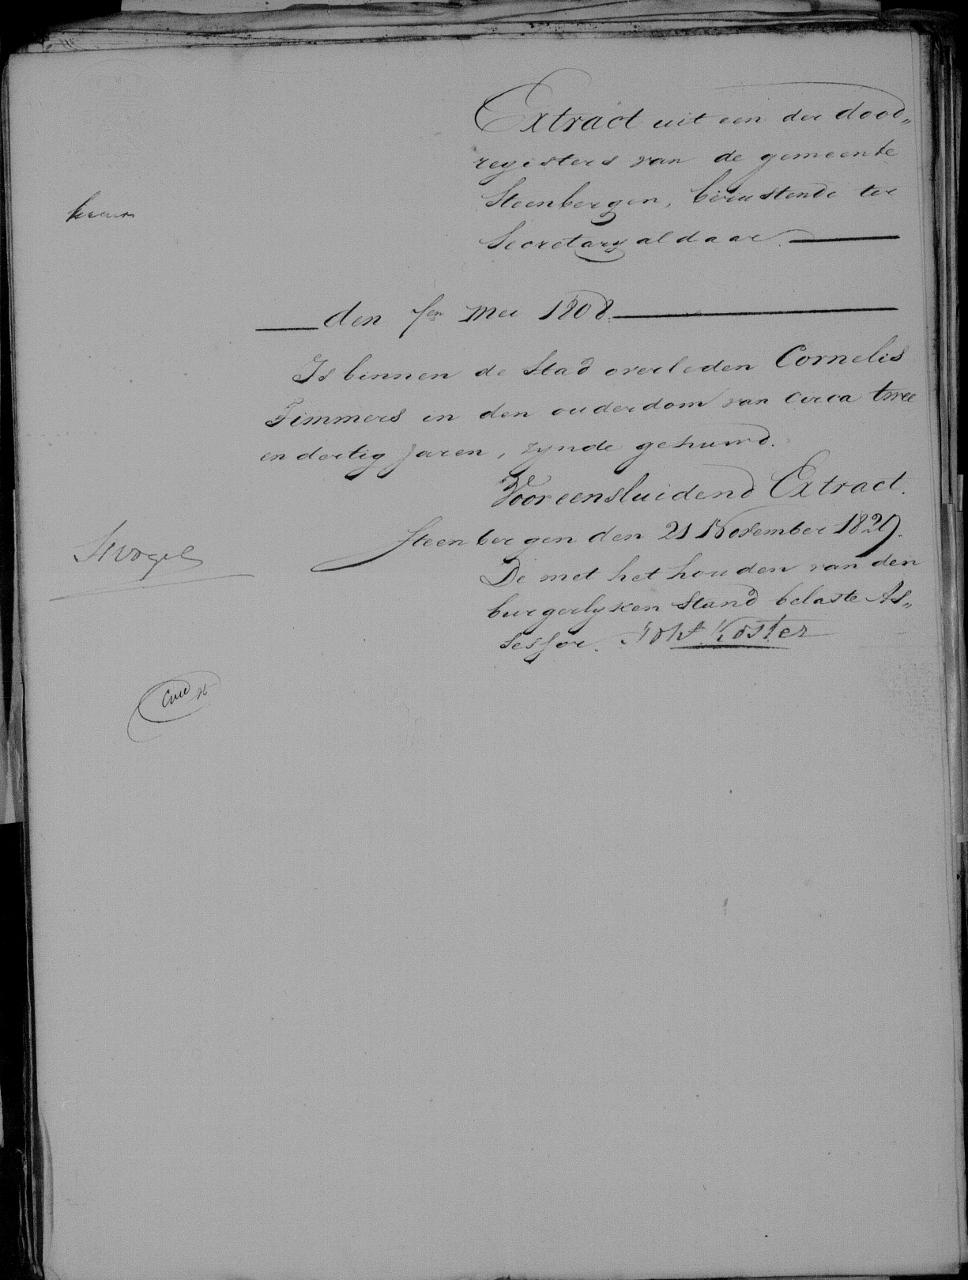 Extract uit een der dood„
registers van de gemeente
Steenbergen, berustende ter
Secretary aldaar.
den Mei 1808.
Is binnen de Stad overleden Cornelis
Timmers in den ouderdom van circa twee
en dertig Jaren, zynde gehuwd.
Voor eensluidend Extract.
Steenbergen den 21 November 1829.
De met het houden van den
burgerlyken Stand belaste As„
sessor. Koster